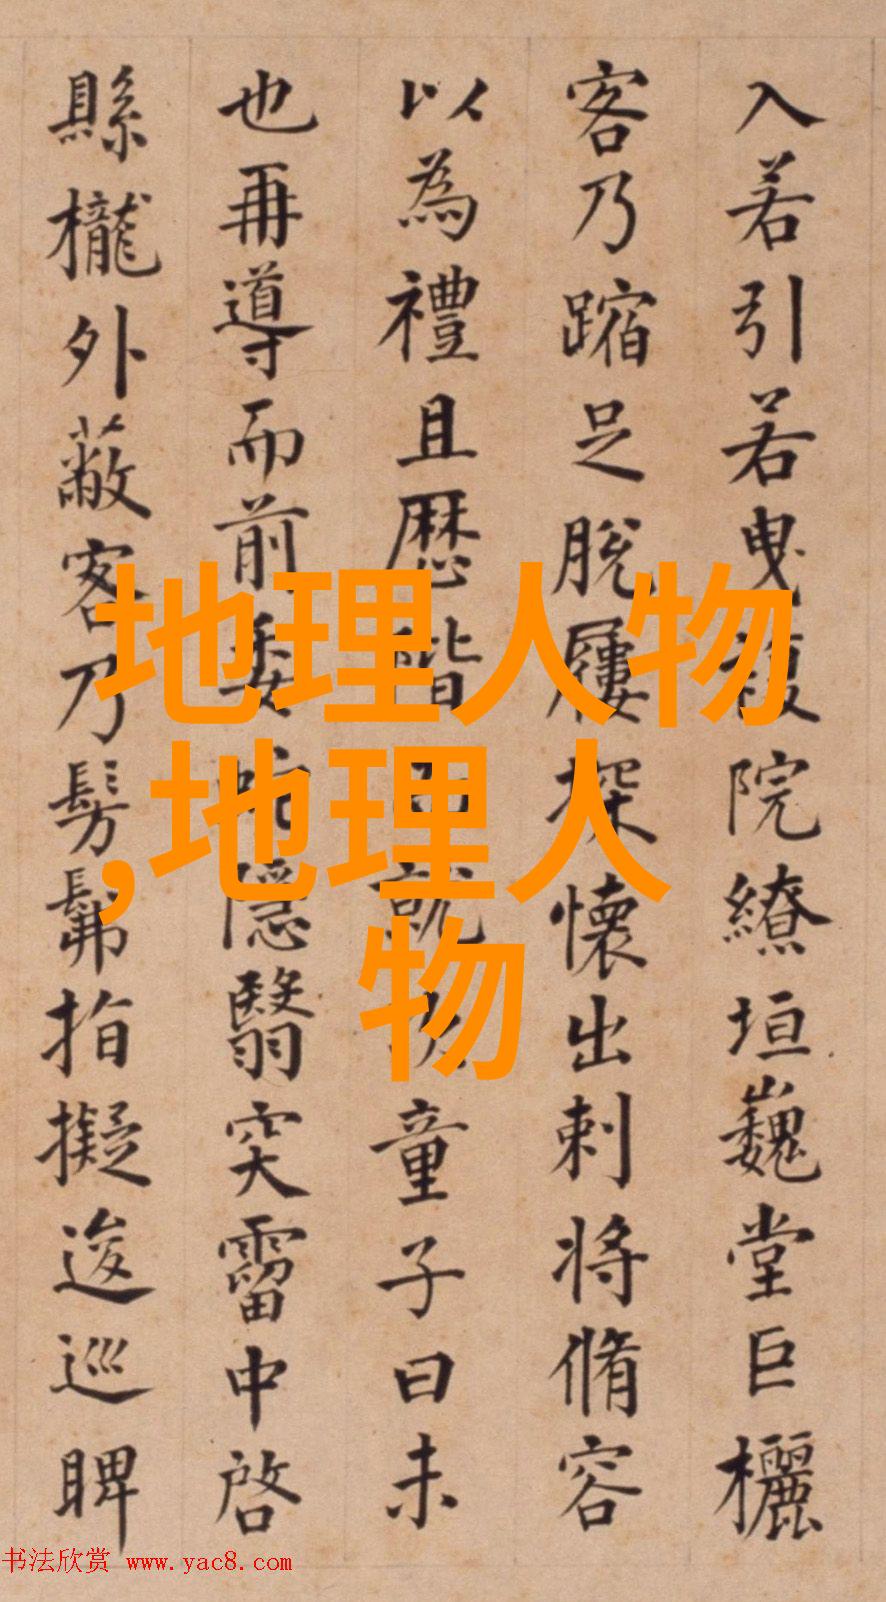 入若引若曳複院繚垣巍堂巨欐
客乃蹜足脫屨探懷出刺將脩容
以為禮且歷階就童子曰未
也再導而前委隱翳突霤中啓
縣櫳外蔽客乃髣髴指擬逡巡睥
地理人物
,地理人
物
书法欣赏 www.yac8.com